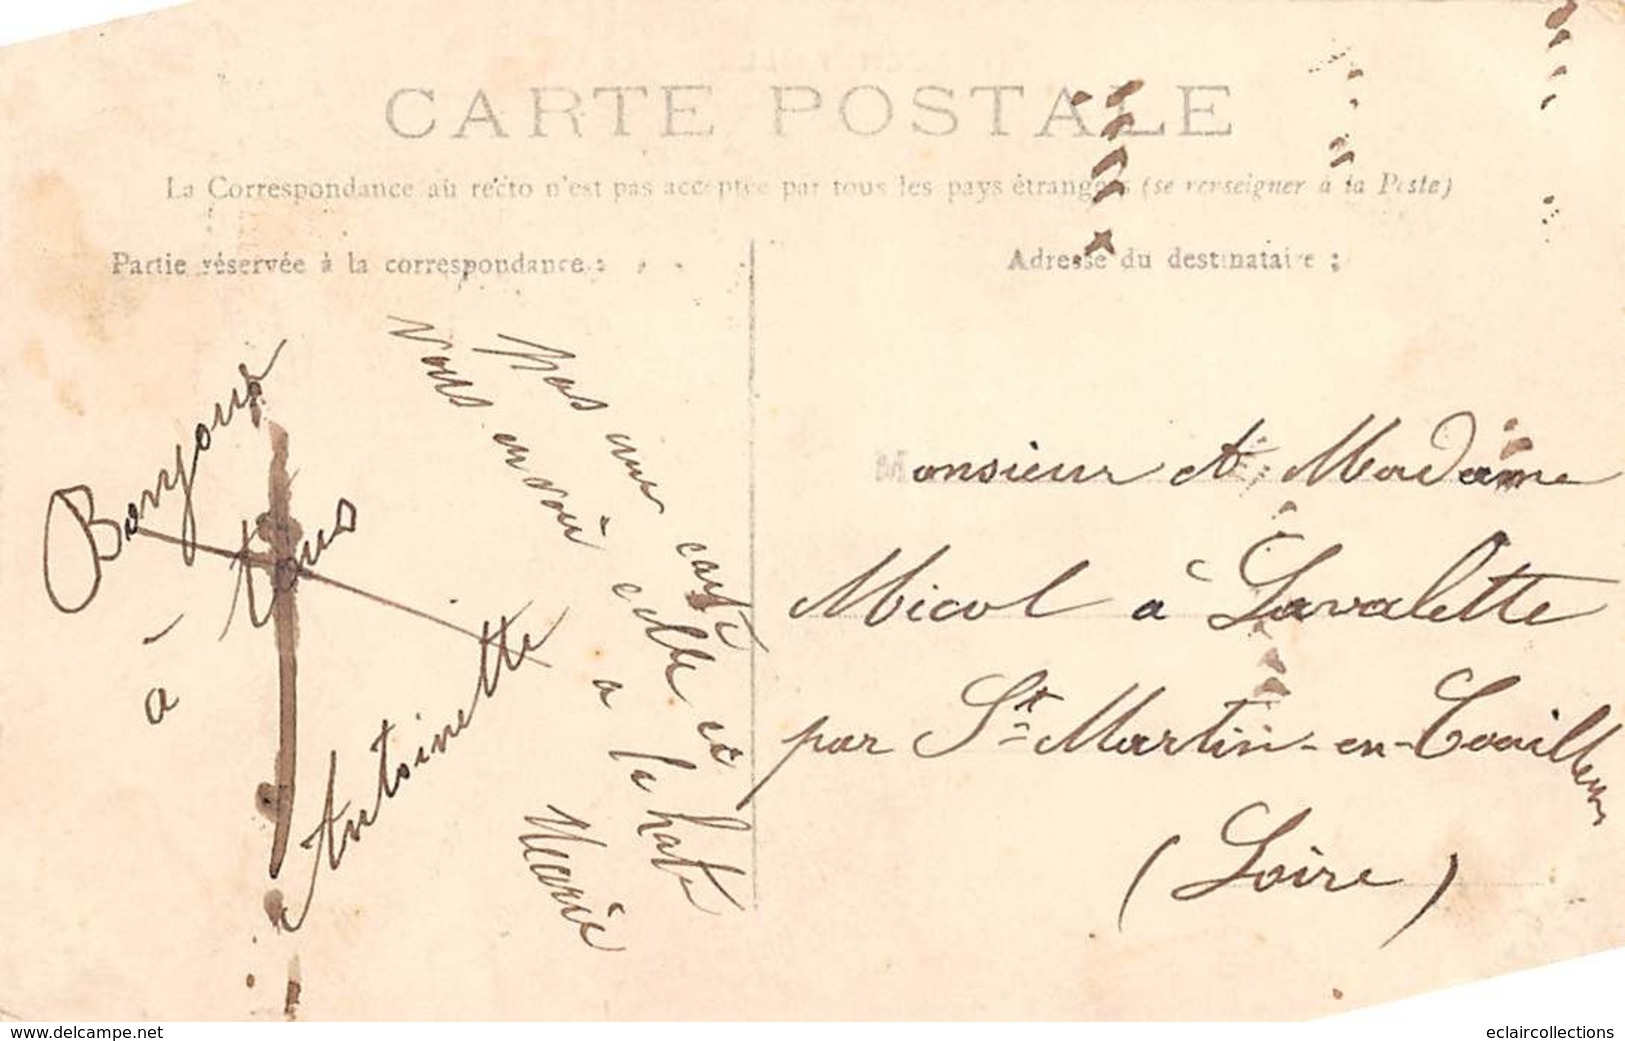 CARTE POSTALE
La Correspondance au recto n'est pas acceptée par tous les pays étrangers (se renseigner à la Poste)
Partie réservée à la correspondance :
Adresse du destinataire :
Bonjour
à tous
Antoinette
carte
vous envoi celle ci
a la hate
Marie
Monsieur et Madame
Micol à Lavalette
par St Martin-en-Coailleux
(Loire)
www.delcampe.net
eclaircollections